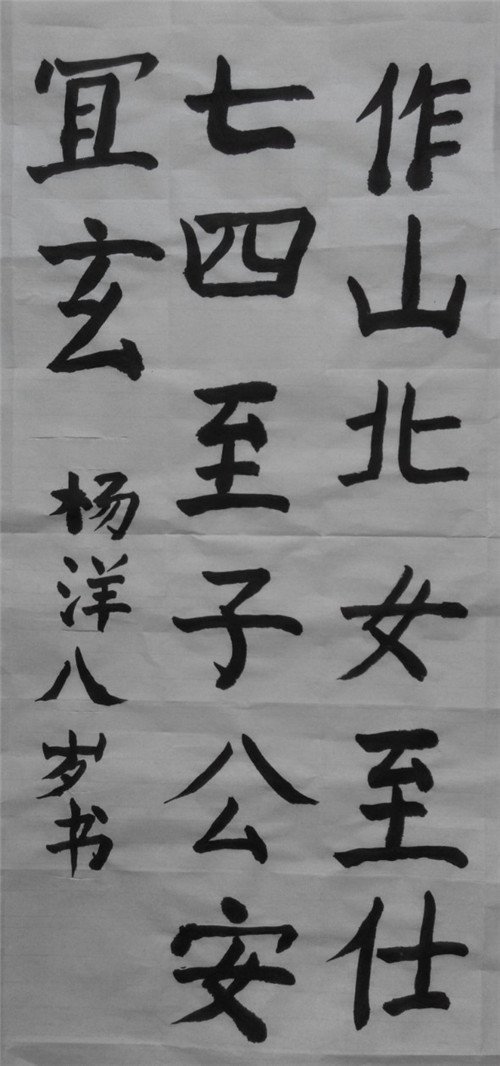 作山北女至仕
七四至子公安
冝玄
杨洋八岁书